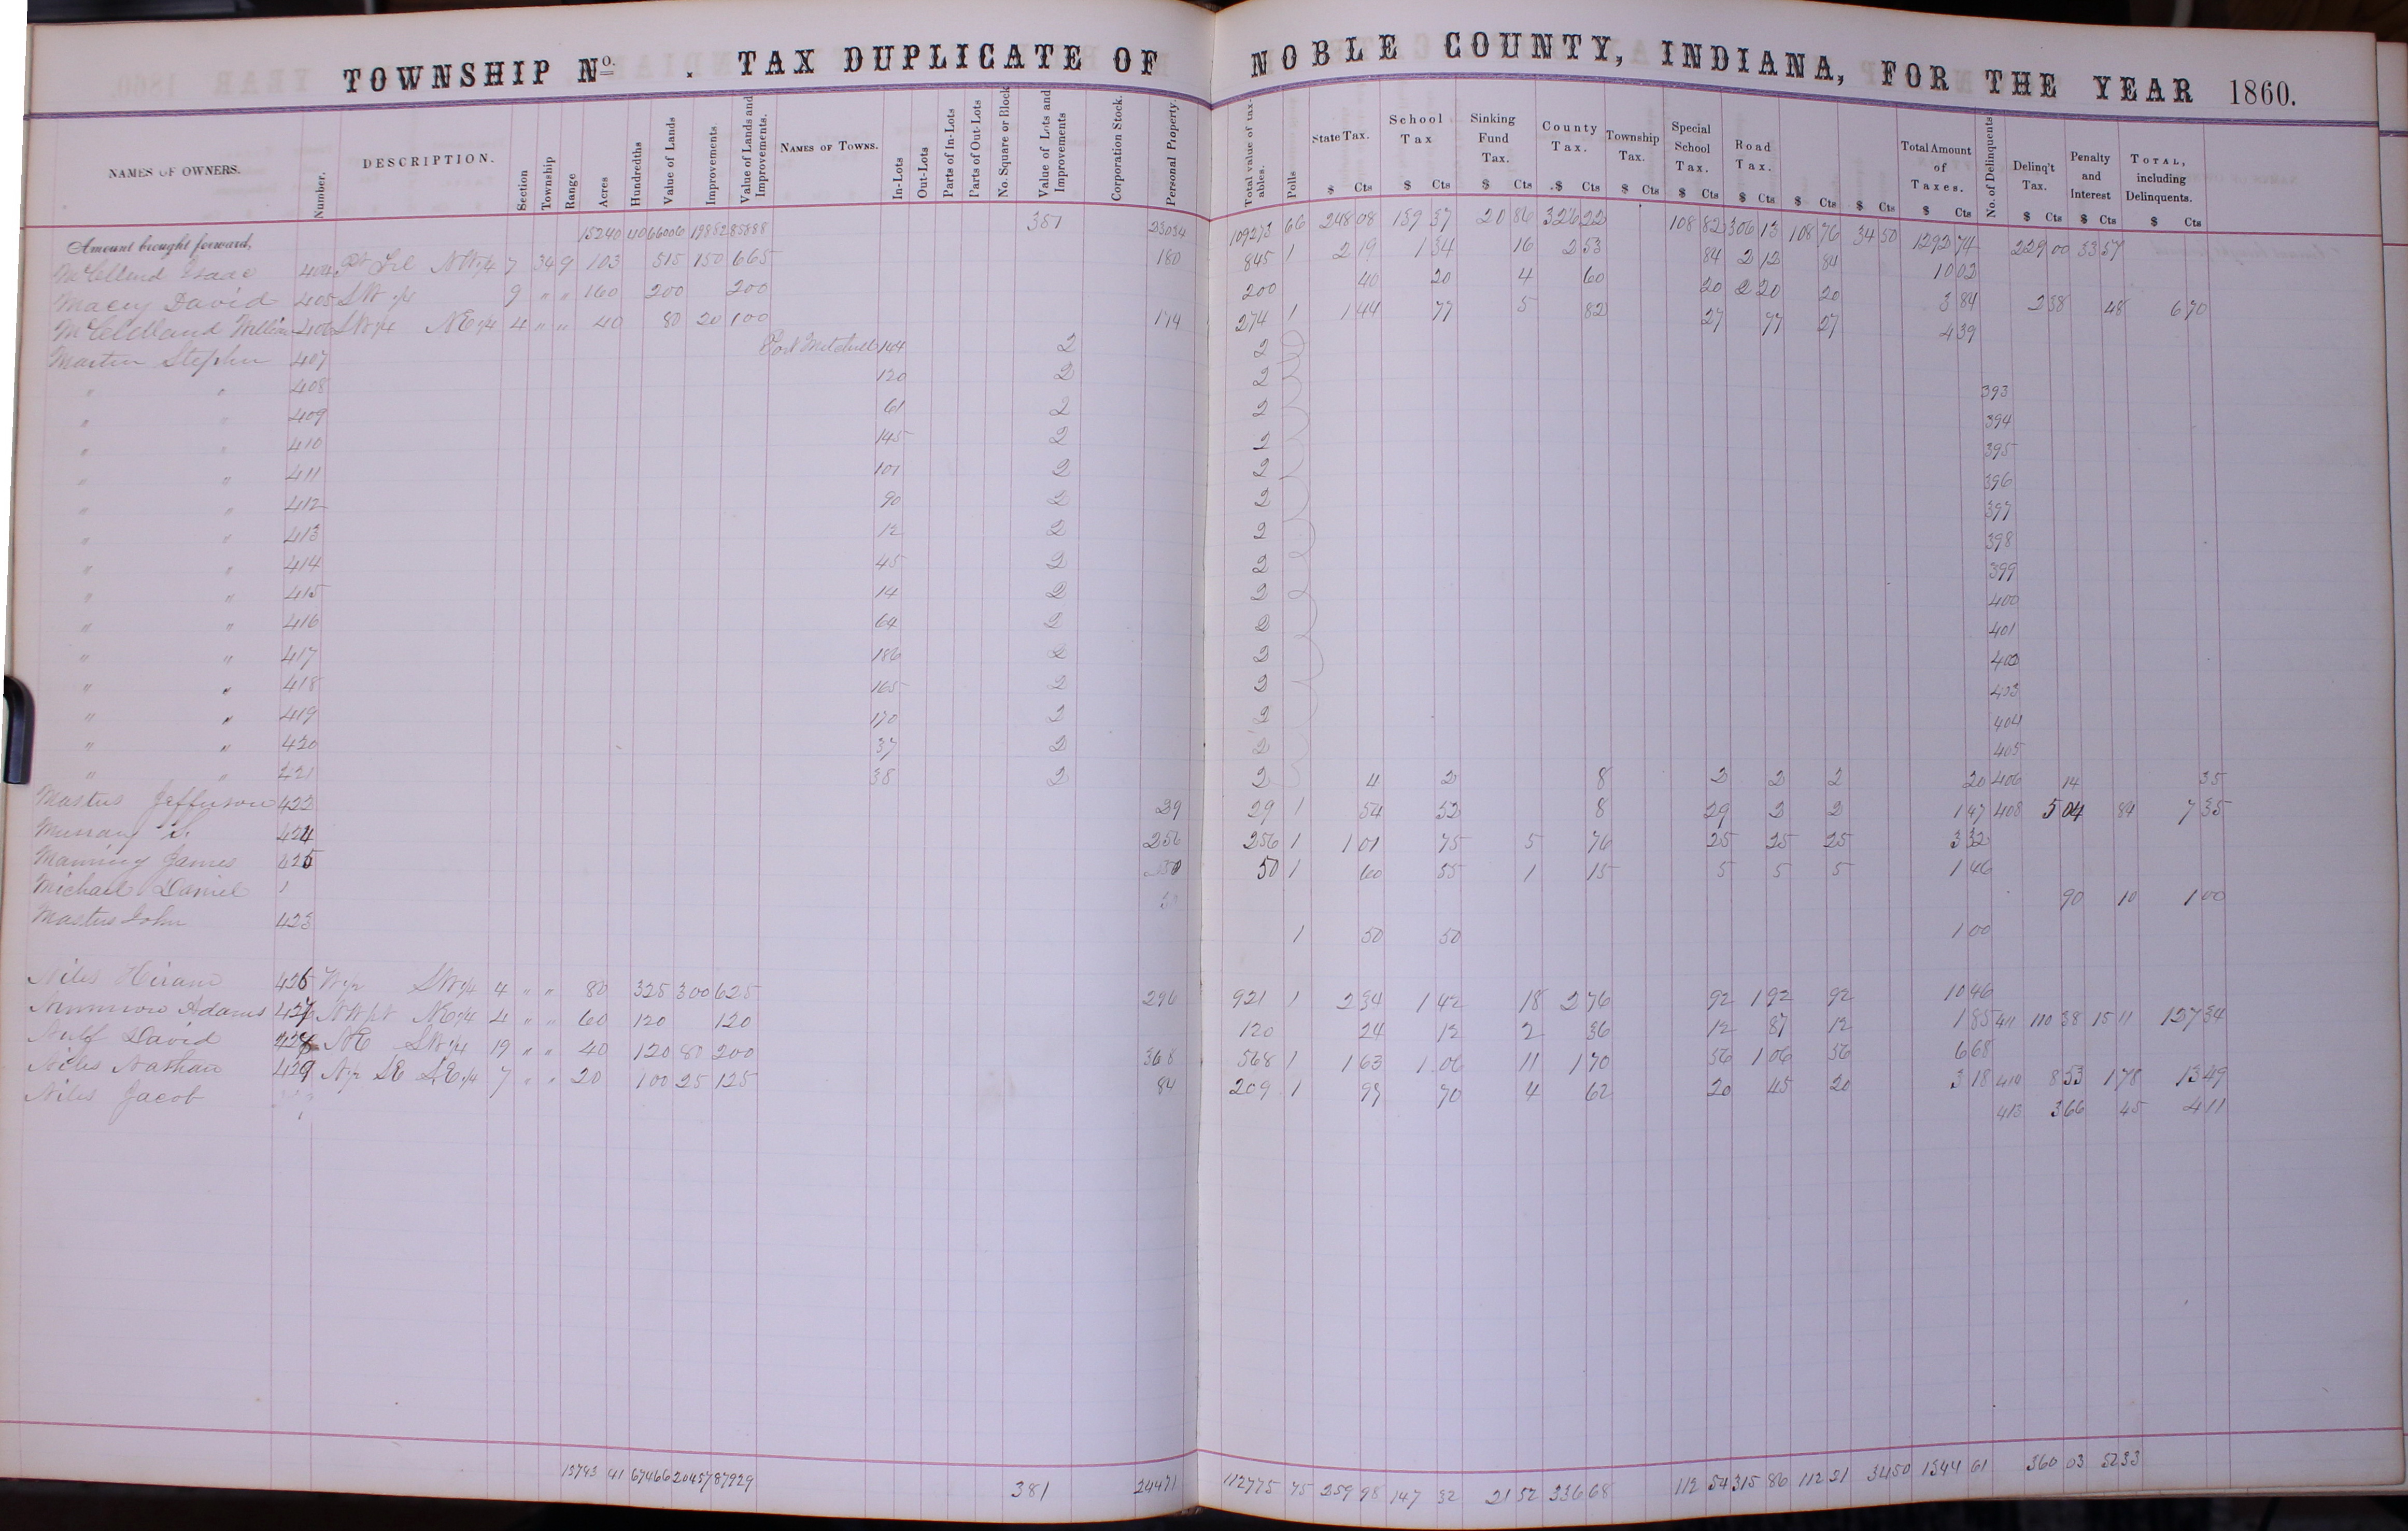 TOWNSHIP No. . TAX DUPLICATE OF NOBLE COUNTY, INDIANA, FOR THE YEAR 1860.
NAMES OF OWNERS. Number. DESCRIPTION. Section Township Range Acres Hundredths Value of Lands Improvements Value of Lands and Improvements. NAMES OF TOWNS. In-Lots Out-Lots Parts of In-Lots Parts of Out-Lots No. Square or Block Value of Lots and Improvements Corporation Stock. Personal Property. Total value of taxables. Polls State Tax. School Tax Sinking Fund Tax. County Tax. Township Tax. Special School Tax. Road Tax. Total Amount of Taxes. No. of Delinquents Delinq't Tax. Penalty and Interest TOTAL, including Delinquents.
$ Cts $ Cts $ Cts $ Cts $ Cts $ Cts $ Cts $ Cts $ Cts $ Cts $ Cts $ Cts $ Cts
Amount brought forward, 15240 40 66006 19882 85888 351 23034 109273 66 248 08 139 37 20 86 322 22 108 82 306 13 108 76 34 50 1292 74 229 00 33 37
McClelend Isaac 404 Pt NW 1/4 7 34 9 103 515 150 665 180 845 1 2 19 1 34 16 2 53 84 2 12 84 10 02
Macey David 405 SW 1/4 9 " " 160 200 200 200 40 20 4 60 20 2 20 20 3 84 2 38 48 6 70
McCleldland William 406 SW 1/4 NE 1/4 4 " " 40 80 20 100 174 274 1 1 44 77 5 82 27 77 27 4 39
Martin Stephen 407 Port Mitchell 144 2 2
" " 408 120 2 2 393
" " 409 61 2 2 394
" " 410 145 2 2 395
" " 411 101 2 2 396
" " 412 90 2 2 397
" " 413 12 2 2 398
" " 414 45 2 2 399
" " 415 14 2 2 400
" " 416 64 2 2 401
" " 417 186 2 2 402
" " 418 165 2 2 403
" " 419 170 2 2 404
" " 420 37 2 2 405
" " 421 38 2 2 4 2 8 2 2 2 20 406 14 35
Mastus Jefferson 422 29 29 1 54 52 8 29 2 2 1 47 408 5 04 84 7 35
Murray 424 256 256 1 1 01 75 5 76 25 25 25 3 32
Manning James 425 50 50 1 60 55 1 15 5 5 5 1 46
Michael Daniel 90 10 1 00
Mastus John 423 1 50 50 1 00
Niles Hiram 426 W 1/2 SW 1/4 4 " " 80 325 300 625 296 921 1 2 34 1 42 18 2 76 92 1 92 92 10 46
Adams 427 NW pt NE 1/4 4 " " 60 120 120 120 24 12 2 36 12 87 12 1 85 411 110 38 15 11 127 34
David 428 NE SW 1/4 19 " " 40 120 80 200 368 568 1 1 63 1 06 11 1 70 56 1 06 56 6 68
Niles Nathan 429 N 1/2 SE SE 1/4 7 " " 20 100 25 125 84 209 1 97 70 4 62 20 45 20 3 18 410 8 53 1 78 13 49
Niles Jacob 413 3 66 45 4 11
15743 41 67466 20457 87929 381 24471 112775 75 259 98 147 32 21 52 336 68 112 54 315 86 112 21 34 50 1344 61 360 03 52 33